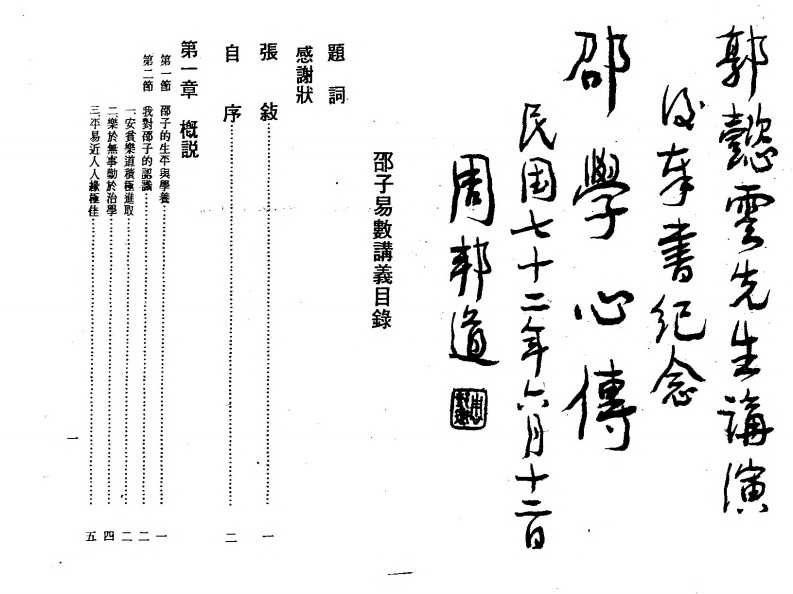 郭懿雲先生講演
後奉書紀念
邵學心傳
民國七十二年六月十二日
周邦道
邵子易數講義目錄
題詞
感謝狀
張敍……一
自序……二
第一章 概説
第一節 邵子的生平與學養……一
第二節 我對邵子的認識……二
一、安貧樂道積極進取……二
二、樂於無事勤於治學……四
三、平易近人人緣極佳……五
一